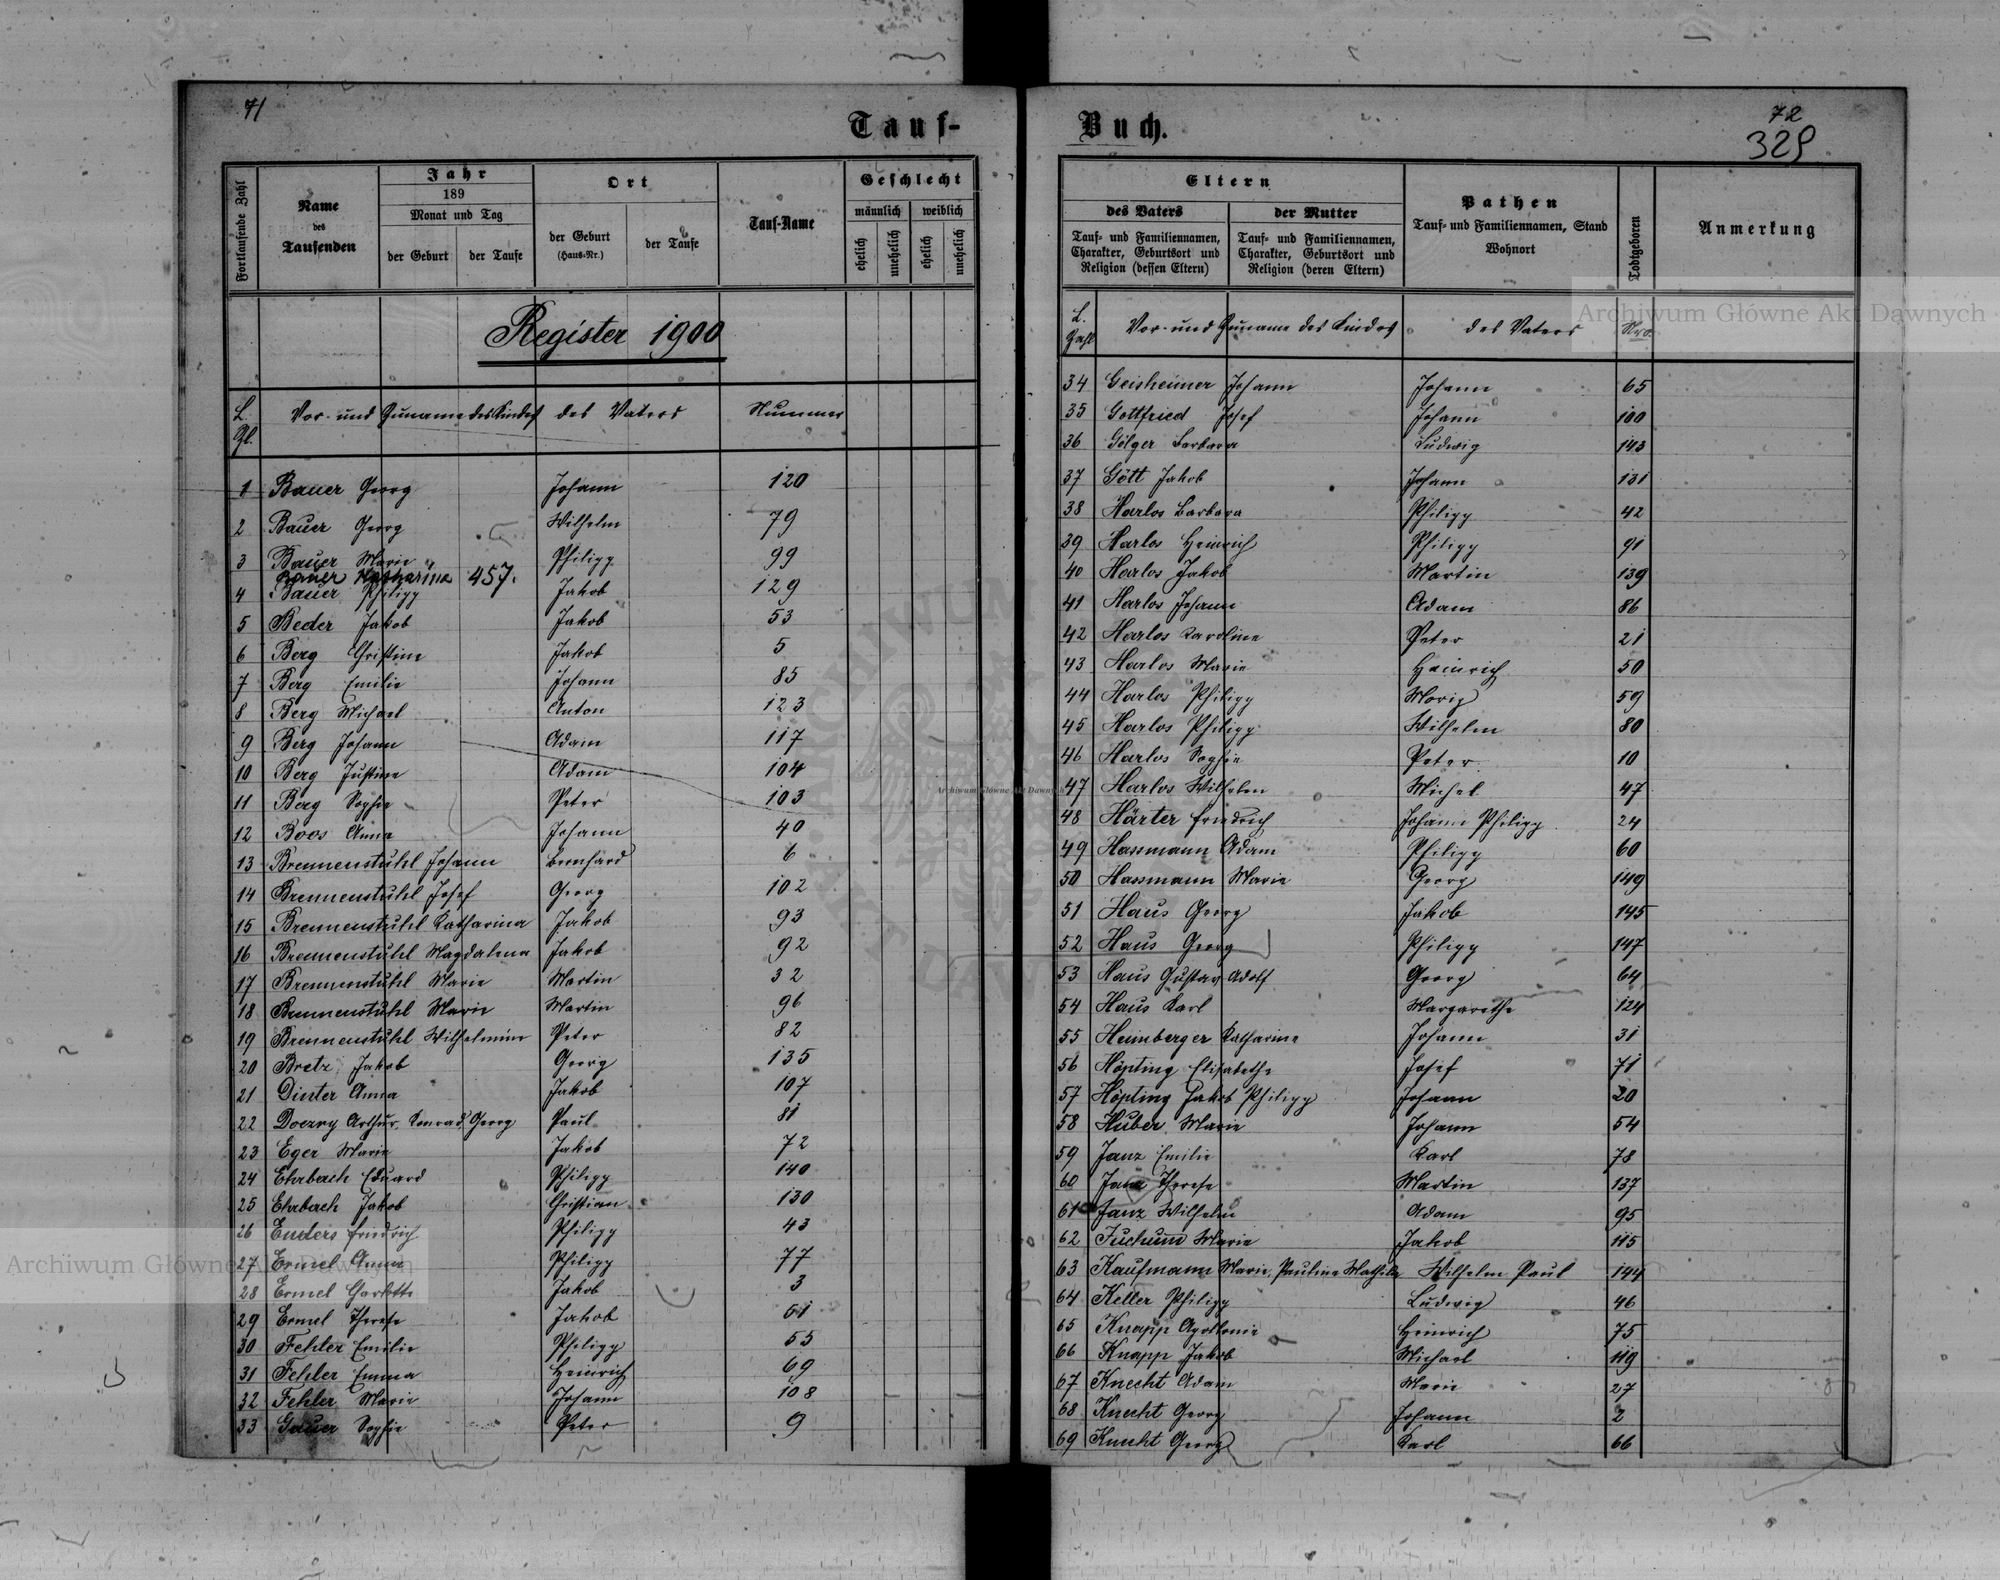 71
Tauf-
Fortlaufende Zahl
Name
des
Taufenden
Jahr
189
Monat und Tag
der Geburt
der Taufe
Ort
der Geburt
(Haus-Nr.)
der Taufe
Tauf-Name
Geschlecht
männlich
weiblich
ehelich
unehelich
ehelich
unehelich
Register 1900
L. Zl. Vor- und Zuname des Kindes des Vaters Nummer
1 Bauer Georg Johann 120
2 Bauer Georg Wilhelm 79
3 Bauer Marie Philipp 99
Bauer Katharina 457.
4 Bauer Philipp Jakob 129
5 Beder Jakob Jakob 53
6 Berg Christine Jakob 5
7 Berg Emilie Johann 85
8 Berg Michael Anton 123
9 Berg Johann Adam 117
10 Berg Justine Adam 104
11 Berg Sophie Peter 103
12 Boos Anna Johann 40
13 Brennenstuhl Johann Bernhard 6
14 Brennenstuhl Josef Georg 102
15 Brennenstuhl Katharina Jakob 93
16 Brennenstuhl Magdalena Jakob 92
17 Brennenstuhl Marie Martin 32
18 Brennenstuhl Marie Martin 96
19 Brennenstuhl Wilhelmine Peter 82
20 Bretz Jakob Georg 135
21 Dinter Anna Jakob 107
22 Doezny Arthur, Konrad, Georg Paul 81
23 Eger Marie Jakob 72
24 Ehrbach Eduard Philipp 140
25 Ehrbach Jakob Christian 130
26 Enders Friedrich Philipp 43
27 Ermel Anna Philipp 77
28 Ermel Charlotte Jakob 3
29 Ermel Therese Jakob 51
30 Fehler Emilie Philipp 55
31 Fehler Emma Heinrich 69
32 Fehler Marie Johann 108
33 Gauer Sophie Peter 9
Buch.
72
329
Eltern
des Vaters
der Mutter
Tauf- und Familiennamen, Charakter, Geburtsort und Religion (dessen Eltern)
Tauf- und Familiennamen, Charakter, Geburtsort und Religion (deren Eltern)
Pathen
Tauf- und Familiennamen, Stand
Wohnort
Todtgeboren
Anmerkung
L. Zahl Vor- und Zuname des Kindes des Vaters Nro.
34 Geisheimer Johann Johann 65
35 Gottfried Josef Johann 100
36 Gölger Barbara Ludwig 143
37 Gött Jakob Johann 131
38 Harlos Barbara Philipp 42
39 Harlos Heinrich Philipp 91
40 Harlos Jakob Martin 139
41 Harlos Johann Adam 86
42 Harlos Karoline Peter 21
43 Harlos Marie Heinrich 50
44 Harlos Philipp Moriz 59
45 Harlos Philipp Wilhelm 80
46 Harlos Sophie Peter 10
47 Harlos Wilhelm Michel 47
48 Härter Friedrich Johann Philipp 24
49 Hassmann Adam Philipp 60
50 Hassmann Marie Georg 149
51 Haus Georg Jakob 145
52 Haus Georg Philipp 147
53 Haus Gustav Adolf Georg 64
54 Haus Karl Margarethe 124
55 Heimberger Katharine Johann 31
56 Höpting Elisabethe Josef 71
57 Höpting Jakob Philipp Johann 20
58 Huber Marie Johann 54
59 Janz Emilie Karl 78
60 Janz Therese Martin 137
61 Janz Wilhelm Adam 95
62 Juchum Marie Jakob 115
63 Kaufmann Marie, Pauline Mathilde Wilhelm Paul 144
64 Keller Philipp Ludwig 46
65 Knapp Apollonie Heinrich 75
66 Knapp Jakob Michael 119
67 Knecht Adam Marie 27
68 Knecht Georg Johann 2
69 Knecht Georg Karl 66
Archiwum Główne Akt Dawnych
Archiwum Główne Akt Dawnych
Archiwum Główne Akt Dawnych